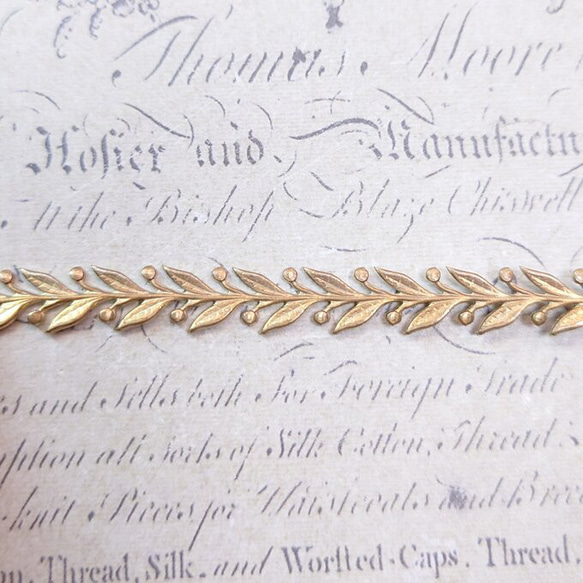 Thomas Moore
Hosier and Manufactu
At the Bishop Blaze Chiswell
s and Sells both For Foreign Trade
ption all Sorts of Silk Cotton, Thread &
knit Pieces for Waistcoats and Bree
on, Thread, Silk, and Worsted Caps, Thread